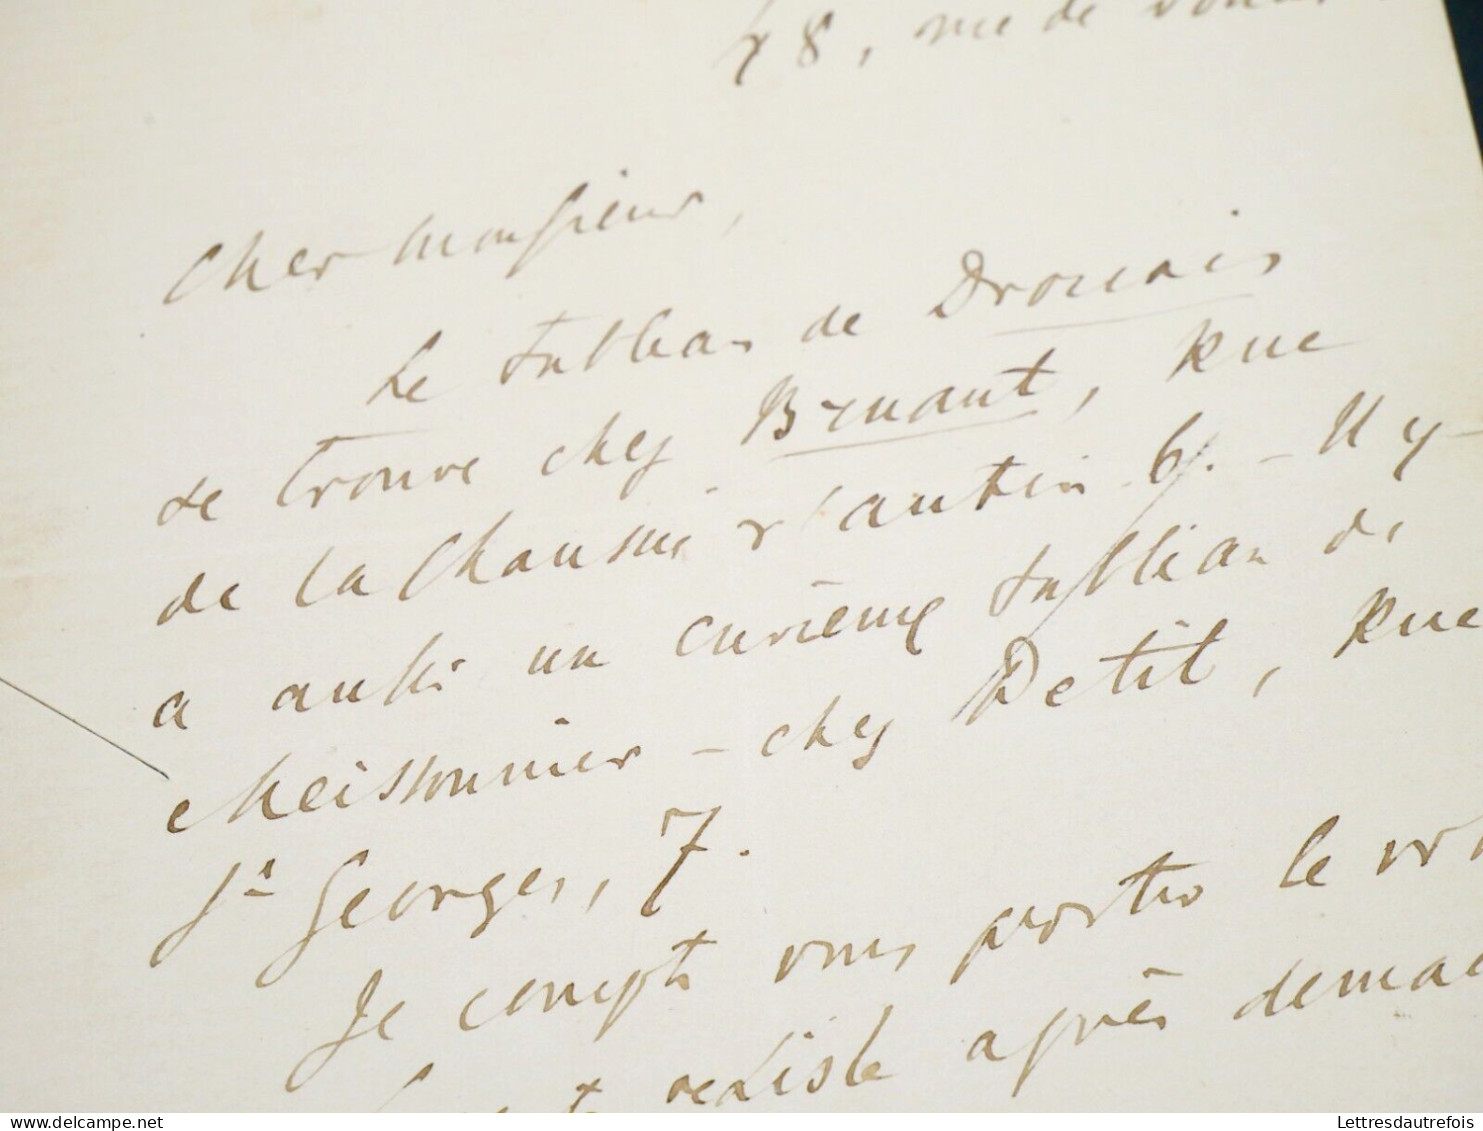 48, rue de
Cher Monsieur,
Le tableau de Drouais
se trouve chez Bruant, Rue
de la Chaussée d'antin 6. – Il y
a aussi un curieux tableau de
Meissonnier – chez Petit, Rue
St Georges, 7.
Je compte vous porter le
après
Lettresdautrefois